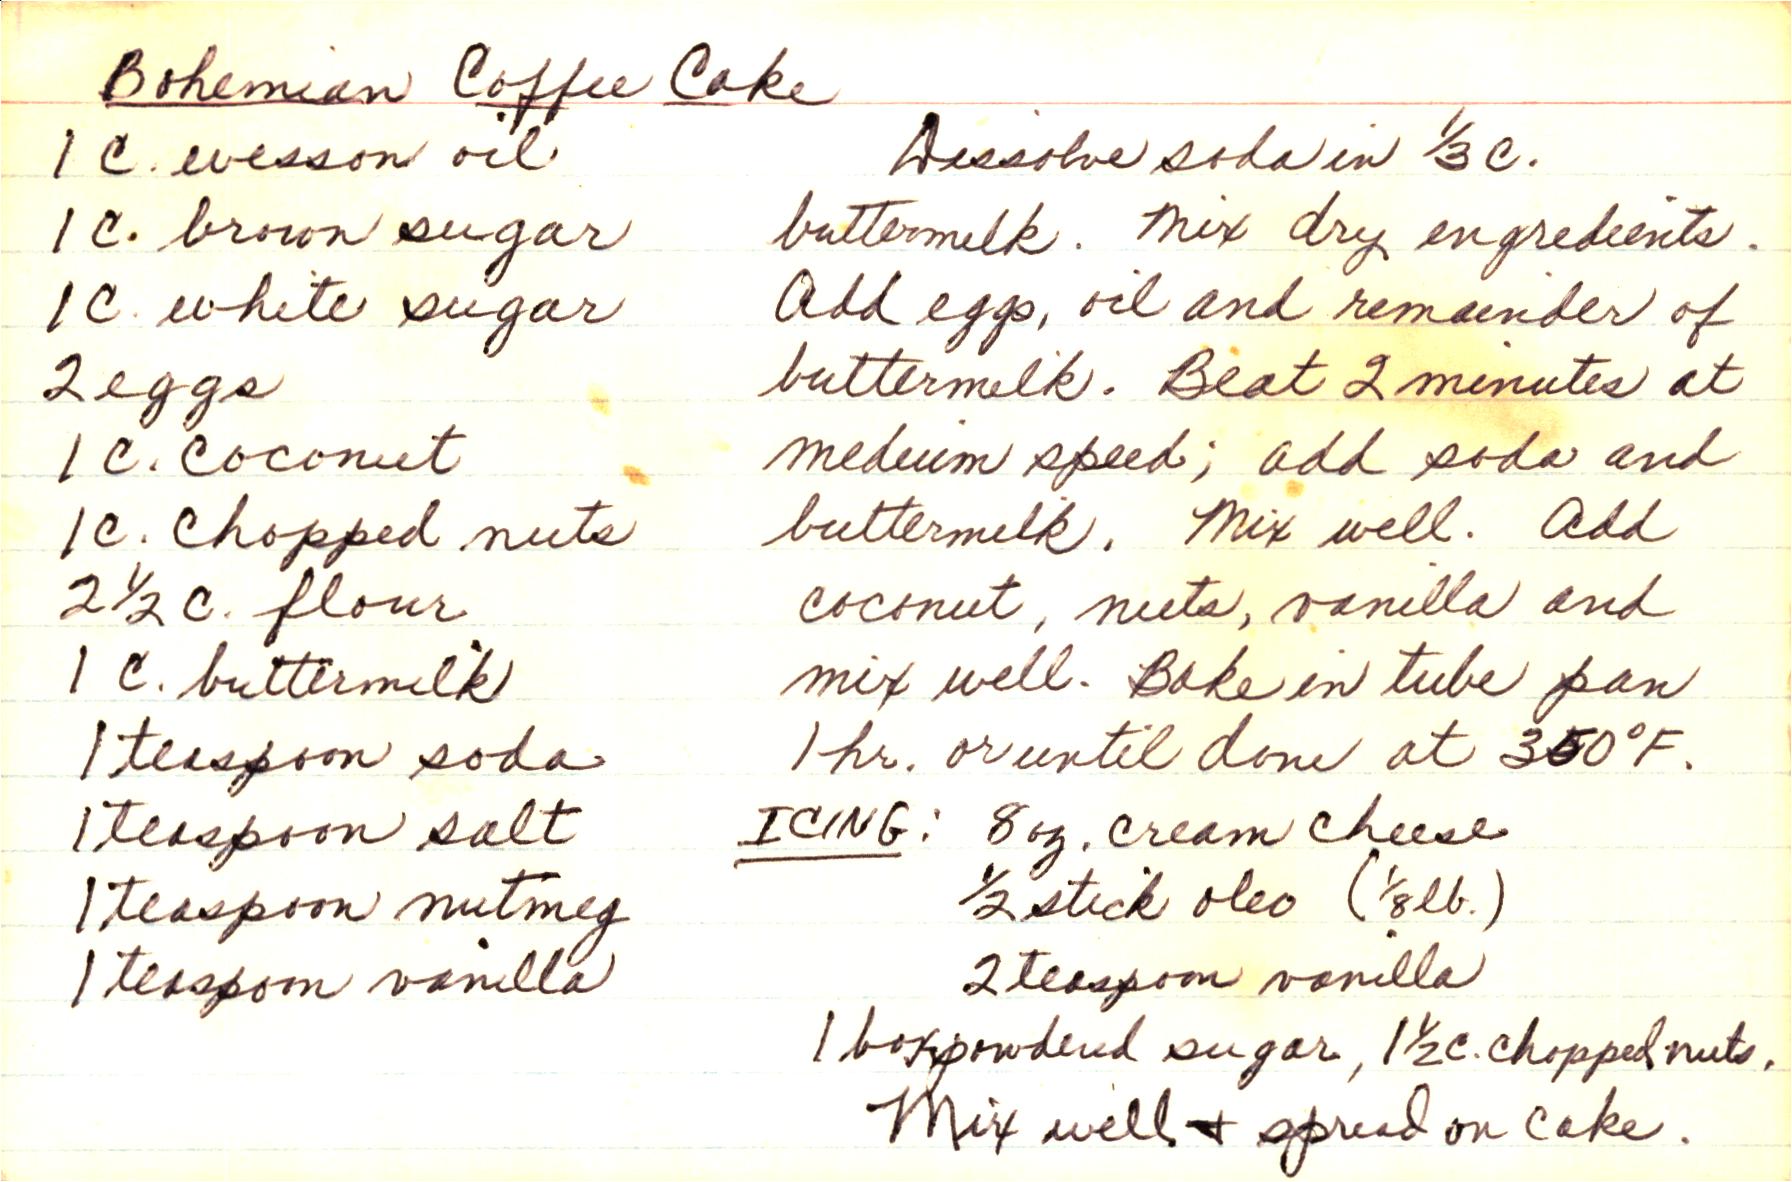 Bohemian Coffee Cake
1 C. wesson oil
1 C. brown sugar
1 C. white sugar
2 eggs
1 C. coconut
1 C. chopped nuts
2 1/2 C. flour
1 C. buttermilk
1 teaspoon soda
1 teaspoon salt
1 teaspoon nutmeg
1 teaspoon vanilla
Dissolve soda in 1/3 C.
buttermilk. Mix dry ingredients.
Add eggs, oil and remainder of
buttermilk. Beat 2 minutes at
medium speed; add soda and
buttermilk. Mix well. Add
coconut, nuts, vanilla and
mix well. Bake in tube pan
1 hr. or until done at 350°F.
ICING: 8 oz. cream cheese
1/2 stick oleo (1/8 lb.)
2 teaspoon vanilla
1 box powdered sugar, 1 1/2 C. chopped nuts.
Mix well & spread on cake.